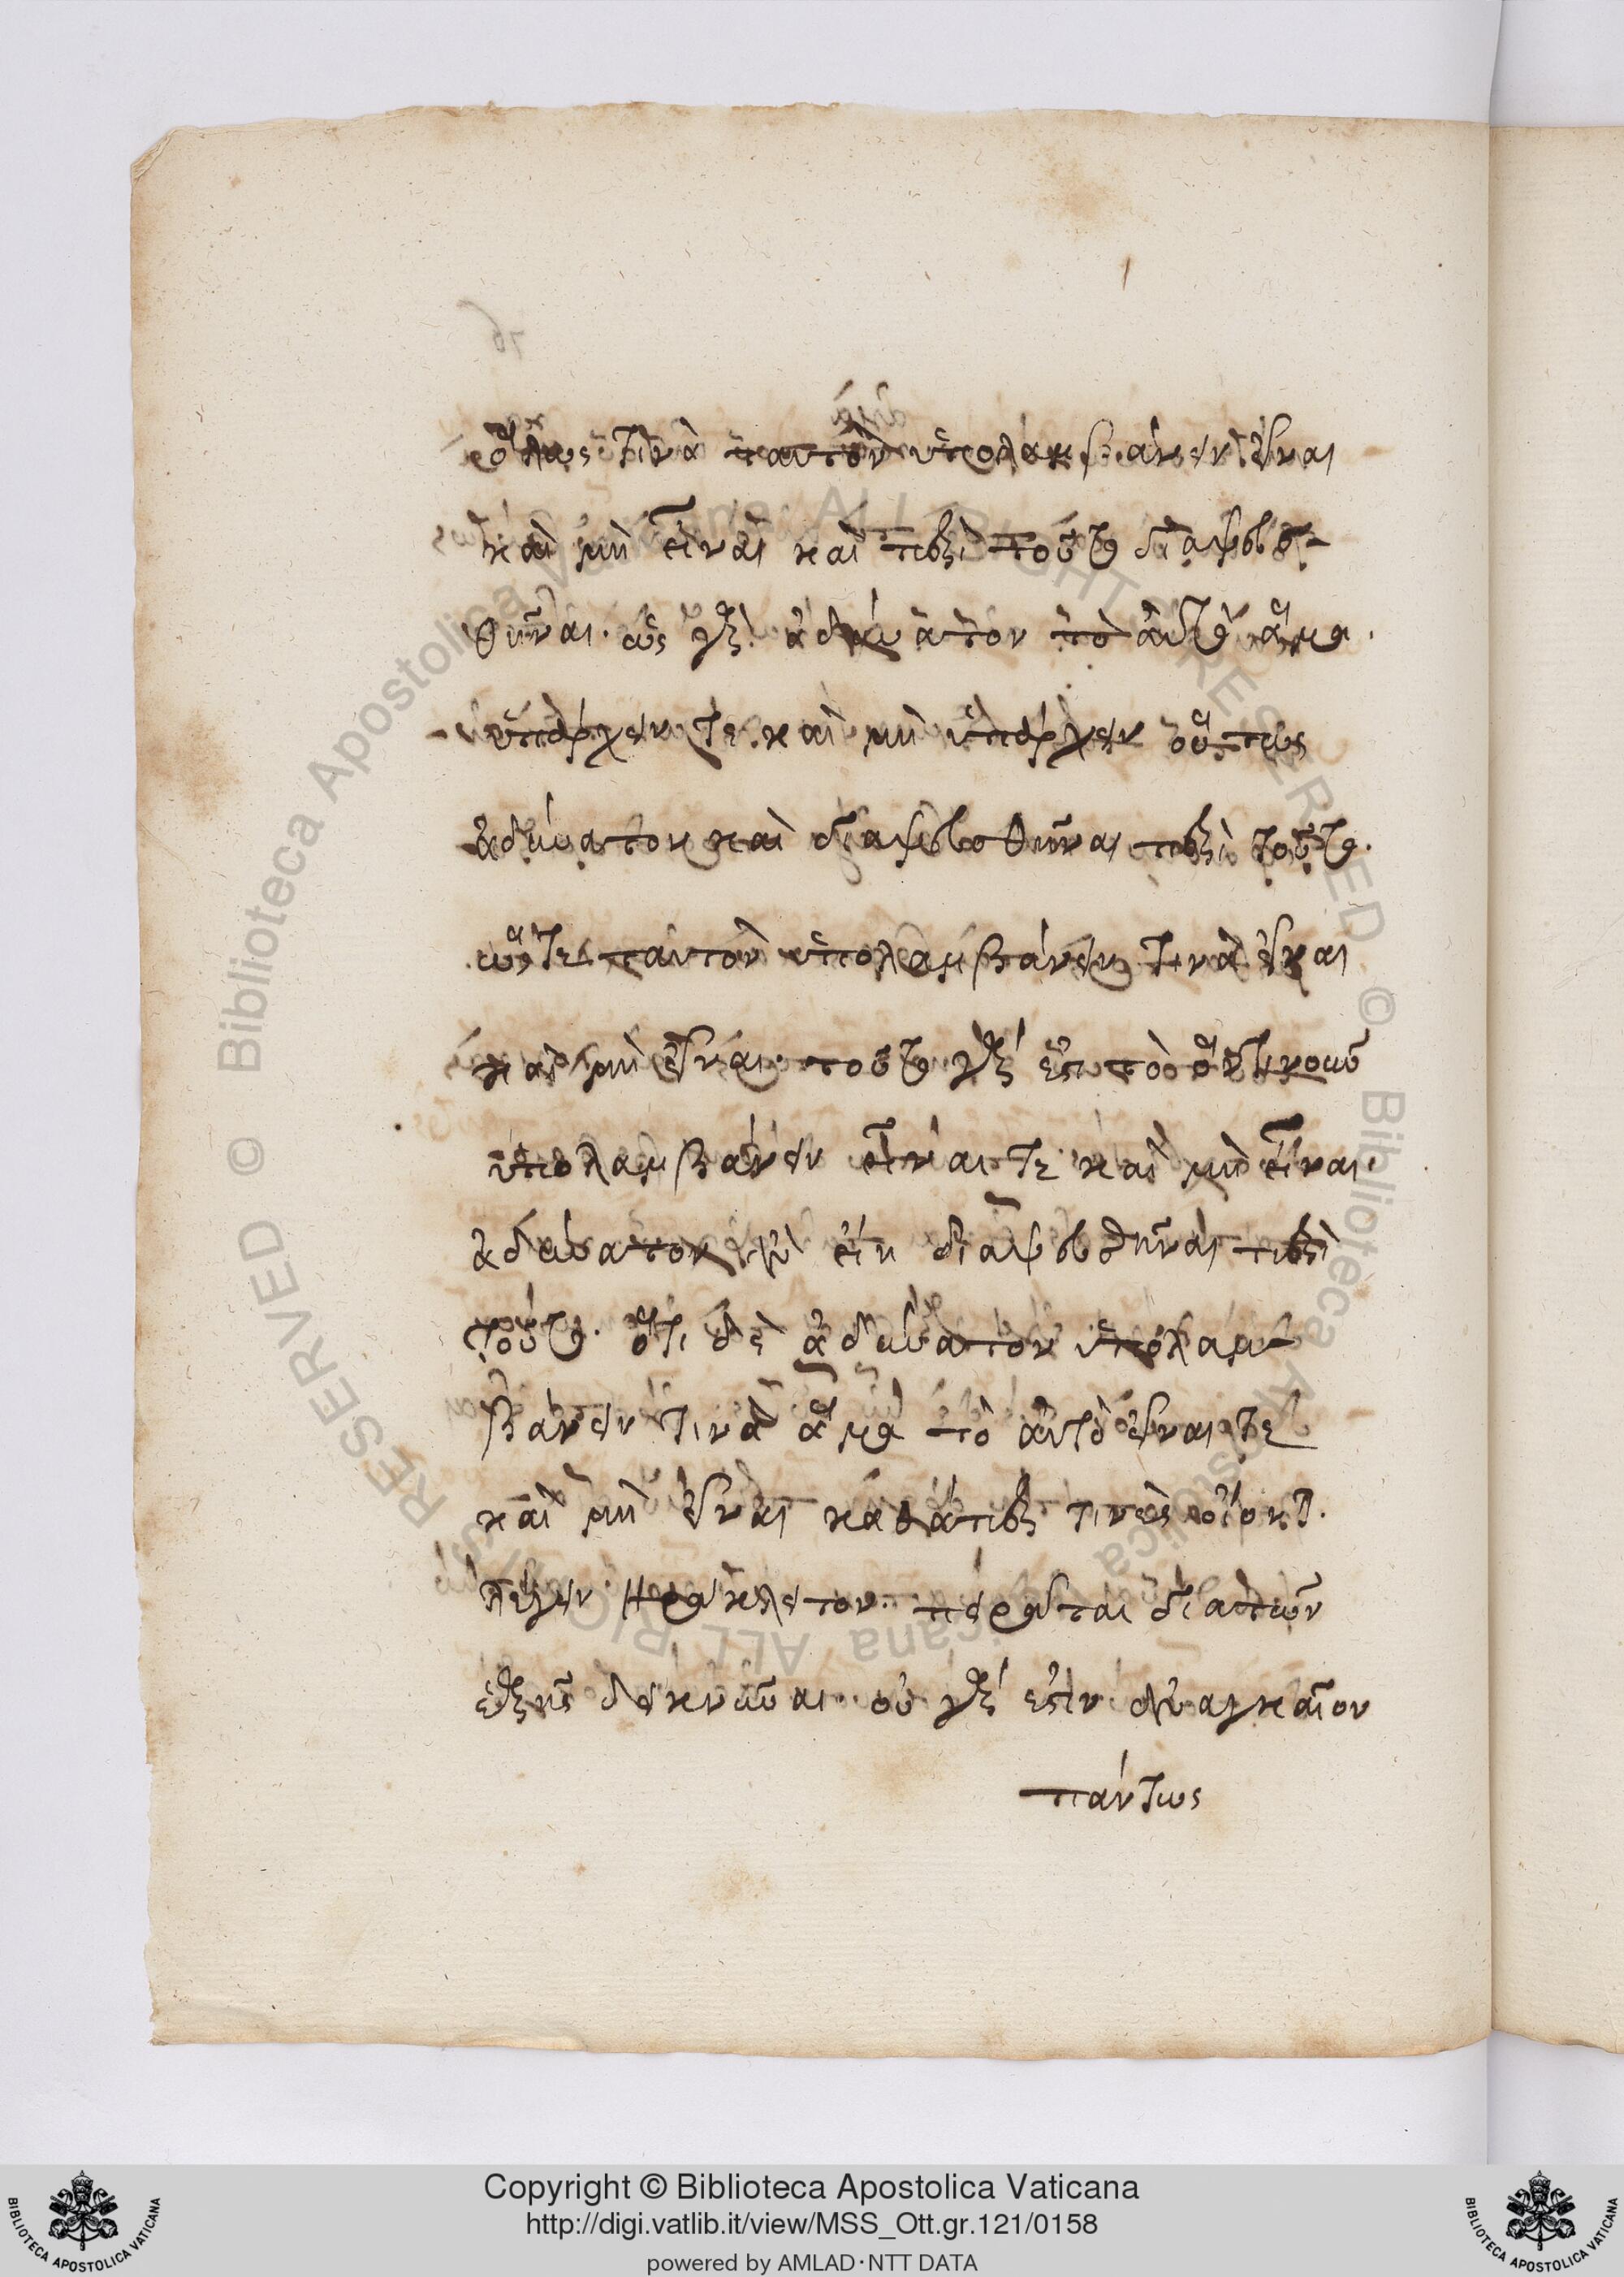 ὅλως τινὰ ταυτὸν ὑπολαμβάνειν εἶναι
καὶ μὴ εἶναι καὶ περὶ τούτου διαψευσ-
θῆναι. ὡς γὰρ ἀδύνατον τὸ αὐτὸ ἅμα
ὑπάρχειν τε καὶ μὴ ὑπάρχειν οὕτως
ἀδύνατον καὶ διαψευσθῆναι περὶ τούτου.
ὥστε ταυτὸν ὑπολαμβάνειν τινὰ εἶναι
καὶ μὴ εἶναι. τοῦτο γάρ ἐστι τὸ ὁντινοῦν
ὑπολαμβάνειν εἶναι τε καὶ μὴ εἶναι.
ἀδύνατον εἴη διαψευσθῆναι περὶ
τούτου. ὅτι δὲ ἀδύνατον ὑπολαμ-
βάνειν τινὰ ἅμα τὸ αὐτὸ εἶναι τε
καὶ μὴ εἶναι καθάπερ τινὲς οἴονται
λέγειν Ἡράκλειτον. πειρᾶται διὰ τῶν
ἑξῆς δεικνύναι. οὐ γάρ ἐστιν ἀναγκαῖον
πάντως
Copyright © Biblioteca Apostolica Vaticana
http://digi.vatlib.it/view/MSS_Ott.gr.121/0158
powered by AMLAD·NTT DATA
BIBLIOTECA APOSTOLICA VATICANA
BIBLIOTECA APOSTOLICA VATICANA